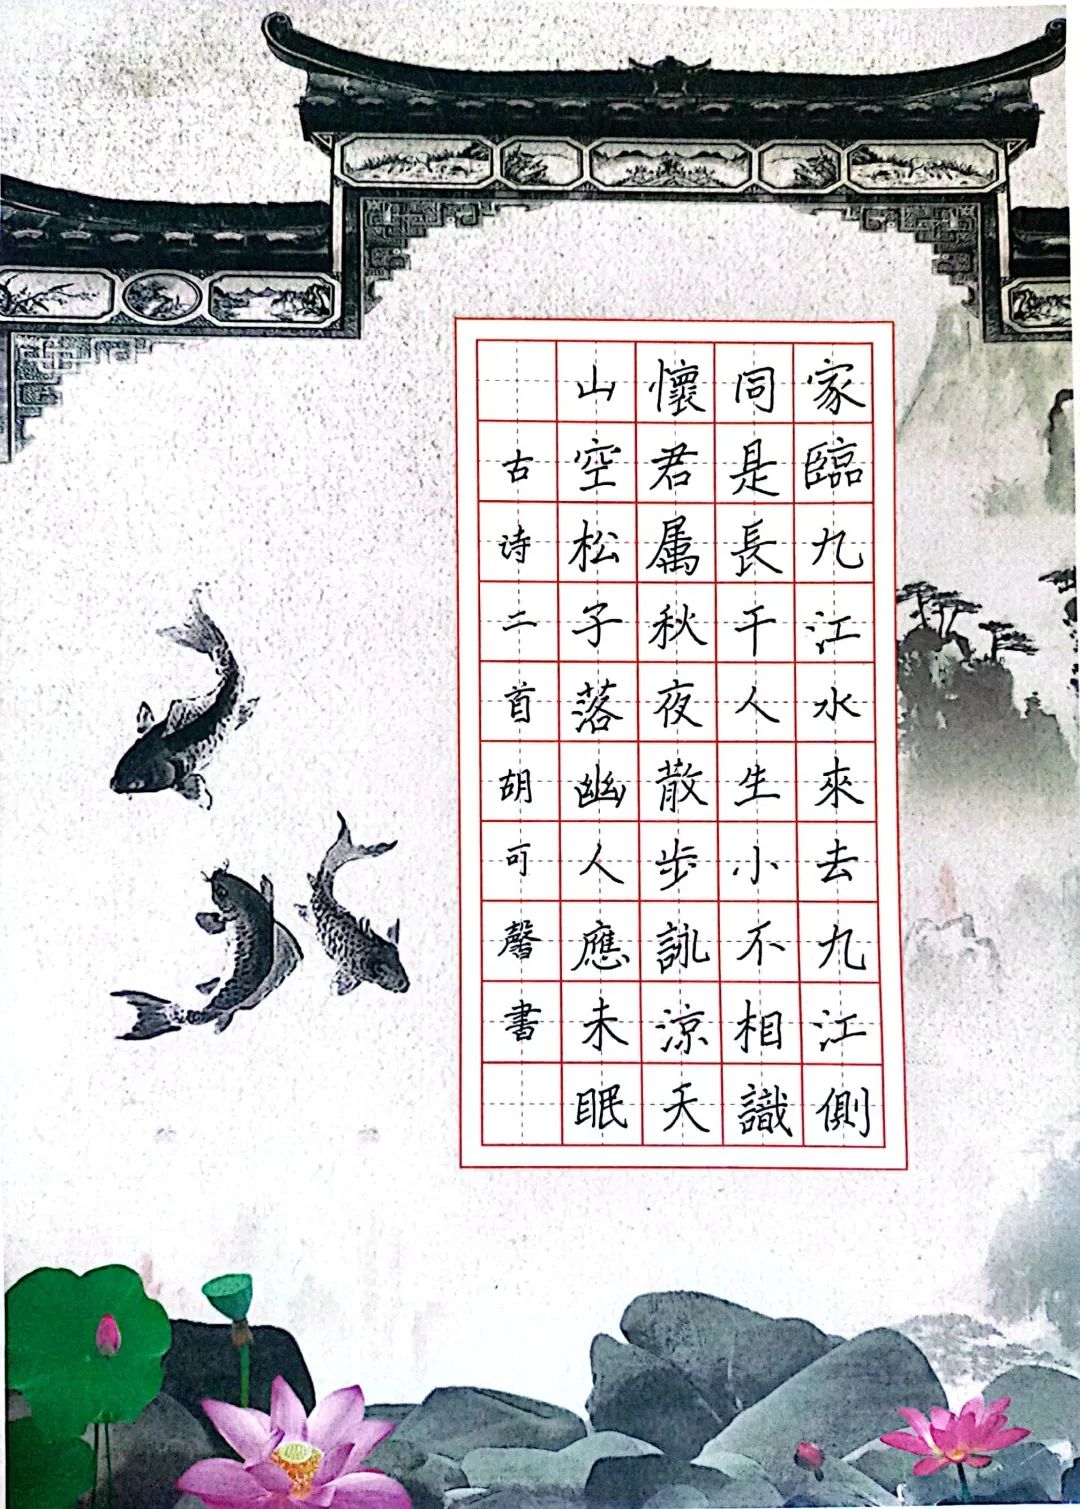 家臨九江水來去九江側
同是長干人生小不相識
懷君属秋夜散步詠涼天
山空松子落幽人應未眠
古诗二首胡可馨書